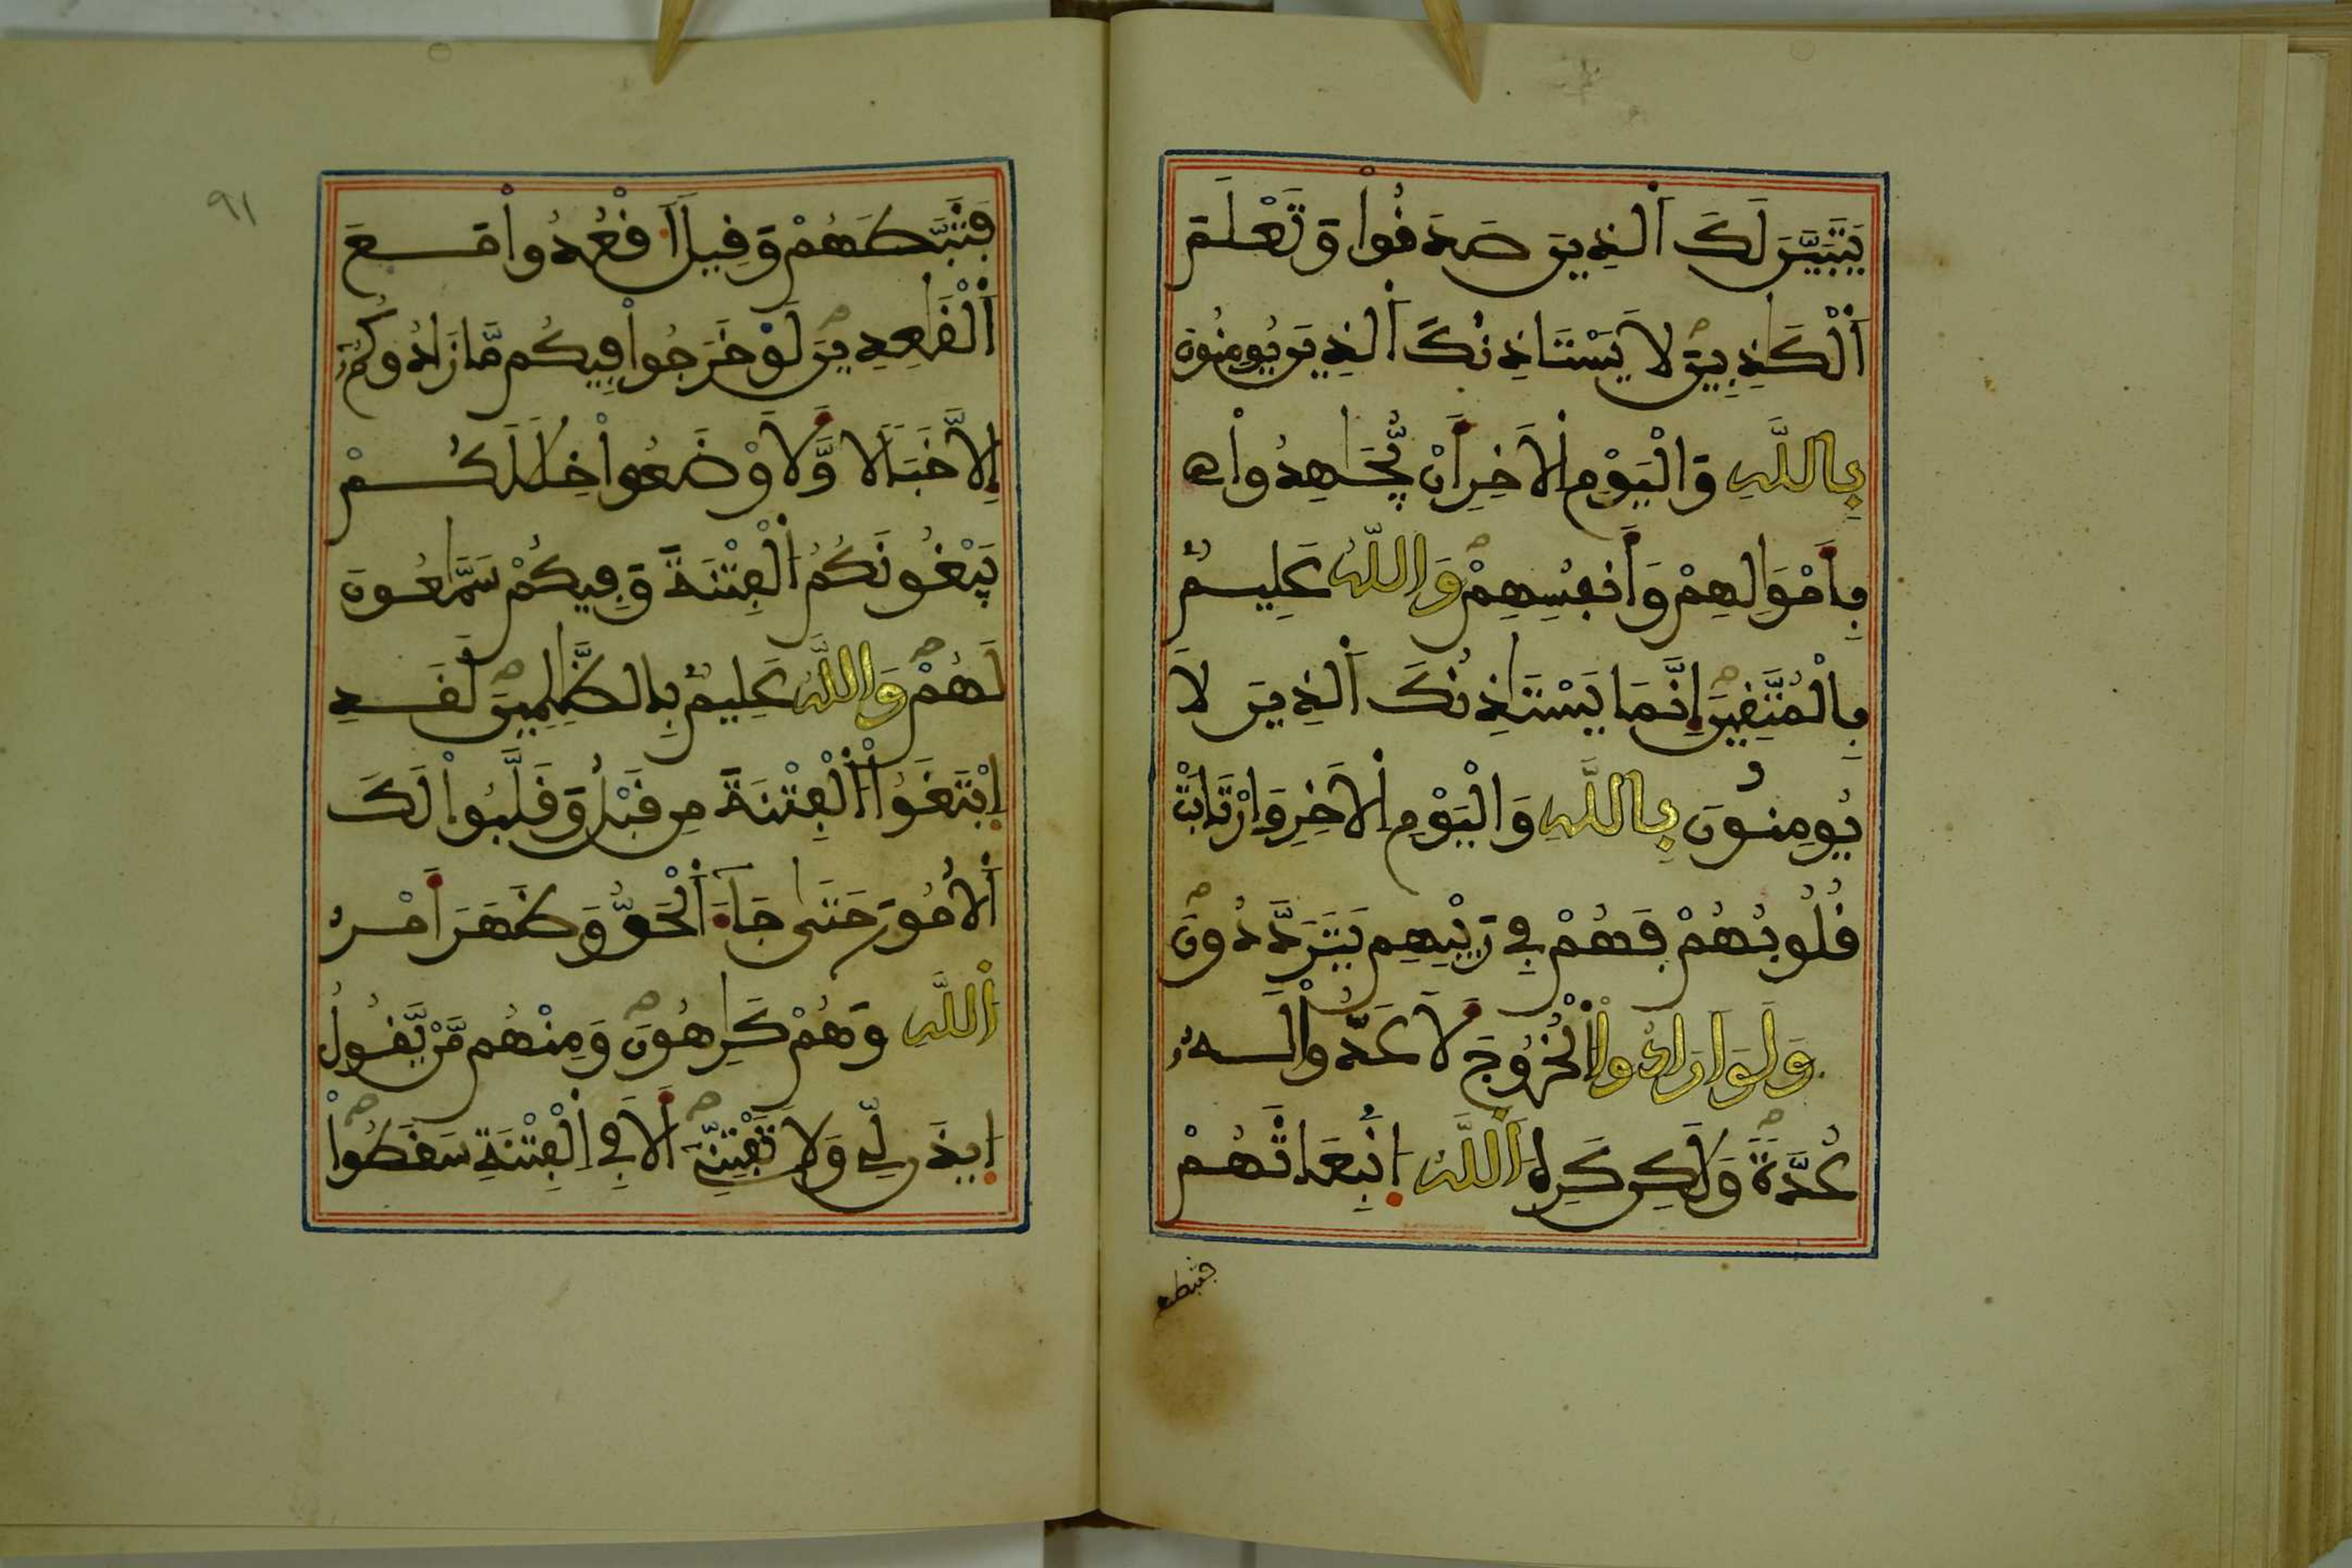 يَتَبَيَّنَ لَكَ اَ۬لذِينَ صَدَقُواْ وَتَعْلَمَ
اَ۬لْكَٰذِبِينَ لَا يَسْتَاذِنُكَ اَ۬لذِينَ يُومِنُونَ
بِاللَّهِ وَالْيَوْمِ اِ۬لَاخِرِ أَنْ يُّجَٰهِدُواْ
بِأَمْوَٰلِهِمْ وَأَنفُسِهِمْ وَاللَّهُ عَلِيمُۢ
بِالْمُتَّقِينَ إِنَّمَا يَسْتَاذِنُكَ اَ۬لذِينَ لَا
يُومِنُونَ بِاللَّهِ وَالْيَوْمِ اِ۬لَاخِرِ وَارْتَابَتْ
قُلُوبُهُمْ فَهُمْ فِي رَيْبِهِمْ يَتَرَدَّدُونَ
وَلَوَ اَرَادُواْ اُ۬لْخُرُوجَ لَأَعَدُّواْ لَهُۥ
عُدَّةً وَلَٰكِن كَرِهَ اَ۬للَّهُ اُ۪نۢبِعَاثَهُمْ
فثبطهم
٩١
فَثَبَّطَهُمْ وَقِيلَ اَ۟قْعُدُواْ مَعَ
اَ۬لْقَٰعِدِينَ لَوْ خَرَجُواْ فِيكُم مَّا زَادُوكُمُۥٓ
إِلَّا خَبَالًا وَّلَأَوْضَعُواْ خِلَٰلَكُمْ
يَبْغُونَكُمُ اُ۬لْفِتْنَةَ وَفِيكُمْ سَمَّٰعُونَ
لَهُمْ وَاللَّهُ عَلِيمُۢ بِالظَّٰلِمِينَ لَقَدِ
اِ۪بْتَغَوُاْ اُ۬لْفِتْنَةَ مِن قَبْلُ وَقَلَّبُواْ لَكَ
اَ۬لُامُورَ حَتَّىٰ جَآءَ اَ۬لْحَقُّ وَظَهَرَ أَمْرُ
اُ۬للَّهِ وَهُمْ كَٰرِهُونَ وَمِنْهُم مَّنْ يَّقُولُ
اُ۪يذَن لِّي وَلَا تَفْتِنِّي أَلَا فِي اِ۬لْفِتْنَةِ سَقَطُواْ